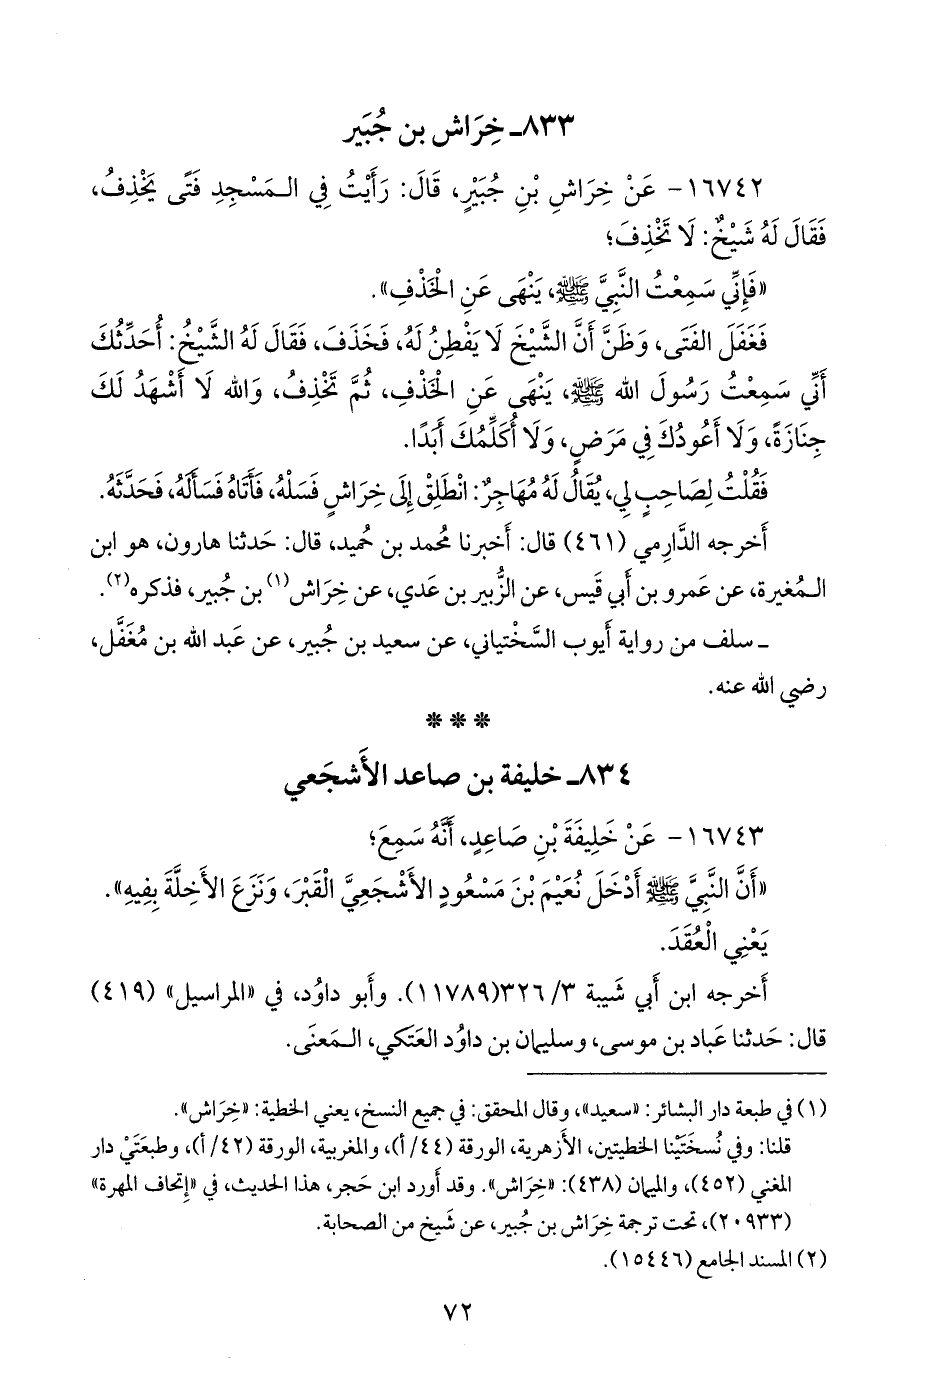 ٨٣٣ـ خِرَاش بن جُبَير
١٦٧٤٢- عَنْ خِرَاشِ بْنِ جُبَيْرٍ، قَالَ: رَأَيْتُ فِي الـمَسْجِدِ فَتًى يَخْذِفُ،
فَقَالَ لَهُ شَيْخٌ: لَا تَخْذِفَ؛
«فَإِنِّي سَمِعْتُ النَّبِيَّ ﷺ، يَنْهَى عَنِ الْخَذْفِ».
فَغَفَلَ الفَتَى، وَظَنَّ أَنَّ الشَّيْخَ لَا يَفْطِنُ لَهُ، فَخَذَفَ، فَقَالَ لَهُ الشَّيْخُ: أُحَدِّثُكَ
أَنِّي سَمِعْتُ رَسُولَ الله ﷺ، يَنْهَى عَنِ الْخَذْفِ، ثُمَّ تَخْذِفُ، وَالله لَا أَشْهَدُ لَكَ
جِنَازَةً، وَلَا أَعُودُكَ فِي مَرَضٍ، وَلَا أُكَلِّمُكَ أَبَدًا.
فَقُلْتُ لِصَاحِبٍ لِي، يُقَالُ لَهُ مُهَاجِرٌ: انْطَلِقْ إِلَى خِرَاشٍ فَسَلْهُ، فَأَتَاهُ فَسَأَلَهُ، فَحَدَّثَهُ.
أَخرجه الدَّارِمي (٤٦١) قال: أَخبرنا مُحمد بن حُميد، قال: حَدثنا هارون، هو ابن
الـمُغيرة، عن عَمرو بن أَبي قَيس، عن الزُّبير بن عَدي، عن خِرَاش(١) بن جُبير، فذكره(٢).
ـ سلف من رواية أَيوب السَّخْتياني، عن سعيد بن جُبير، عن عَبد الله بن مُغَفَّل،
رضي الله عنه.
***
٨٣٤ـ خليفة بن صاعد الأَشجَعي
١٦٧٤٣- عَنْ خَلِيفَةَ بْنِ صَاعِدٍ، أَنَّهُ سَمِعَ؛
«أَنَّ النَّبِيَّ ﷺ أَدْخَلَ نُعَيْمَ بْنَ مَسْعُودٍ الأَشْجَعِيَّ الْقَبْرَ، وَنَزَعَ الأَخِلَّةَ بِفِيهِ».
يَعْنِي الْعُقَدَ.
أَخرجه ابن أَبي شَيبة ٣/ ٣٢٦(١١٧٨٩). وأَبو داوُد، في «المراسيل» (٤١٩)
قال: حَدثنا عَباد بن موسى، وسليمان بن داوُد العَتكي، الـمَعنَى.
(١) في طبعة دار البشائر: «سعيد»، وقال المحقق: في جميع النسخ، يعني الخطية: «خِرَاش».
قلنا: وفي نُسخَتَيْنا الخطيتين، الأَزهرية، الورقة (٤٤/ أ)، والمغربية، الورقة (٤٢/ أ)، وطبعَتَيْ دار
المغني (٤٥٢)، والميمان (٤٣٨): «خِرَاش». وقد أَورد ابن حَجر، هذا الحديث، في «إتحاف المهرة»
(٢٠٩٣٣)، تحت ترجمة خِرَاش بن جُبير، عن شَيخ من الصحابة.
(٢) المسند الجامع (١٥٤٤٦).
٧٢